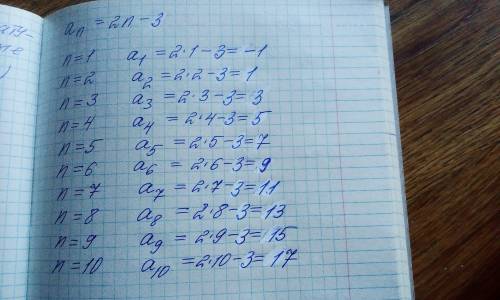 aₙ = 2n - 3
n=1 a₁ = 2·1-3 = -1
n=2 a₂ = 2·2-3 = 1
n=3 a₃ = 2·3-3 = 3
n=4 a₄ = 2·4-3 = 5
n=5 a₅ = 2·5-3 = 7
n=6 a₆ = 2·6-3 = 9
n=7 a₇ = 2·7-3 = 11
n=8 a₈ = 2·8-3 = 13
n=9 a₉ = 2·9-3 = 15
n=10 a₁₀ = 2·10-3 = 17